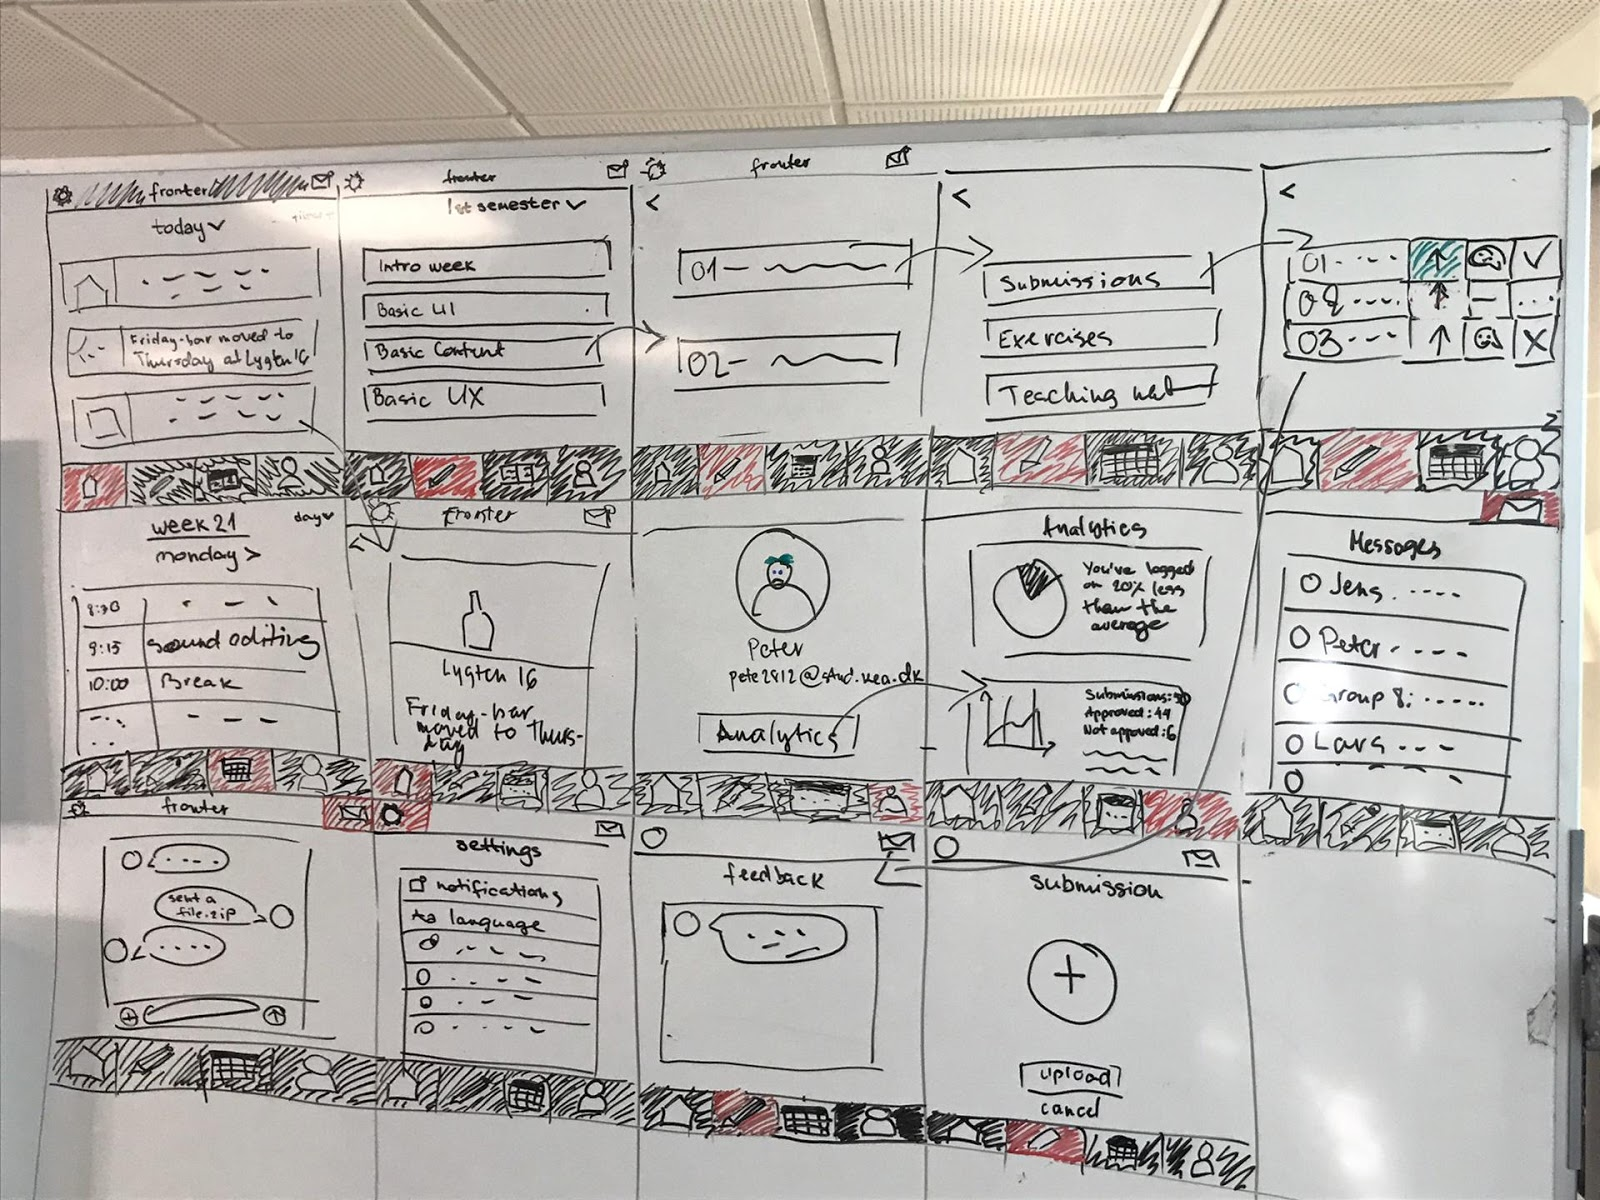 fronter
today
Friday-bar moved to
Thursday at Lygten 16
fronter
1st semester
Intro week
Basic UI
Basic Content
Basic UX
fronter
<
01-
02-
<
Submissions
Exercises
Teaching mat
<
01
02
03
week 21
day
monday >
8:30
9:15 sound editing
10:00 Break
fronter
Lygten 16
Friday-bar
moved to Thurs-
day
Peter
pete2812@stud.kea.dk
Analytics
Analytics
You've logged
on 20% less
than the
average
Submissions: 50
Approved: 44
Not approved: 6
Messages
Jens
Peter
Group 8:
Lars
fronter
sent a
file.zip
settings
notifications
Aa language
feedback
submission
+
upload
cancel